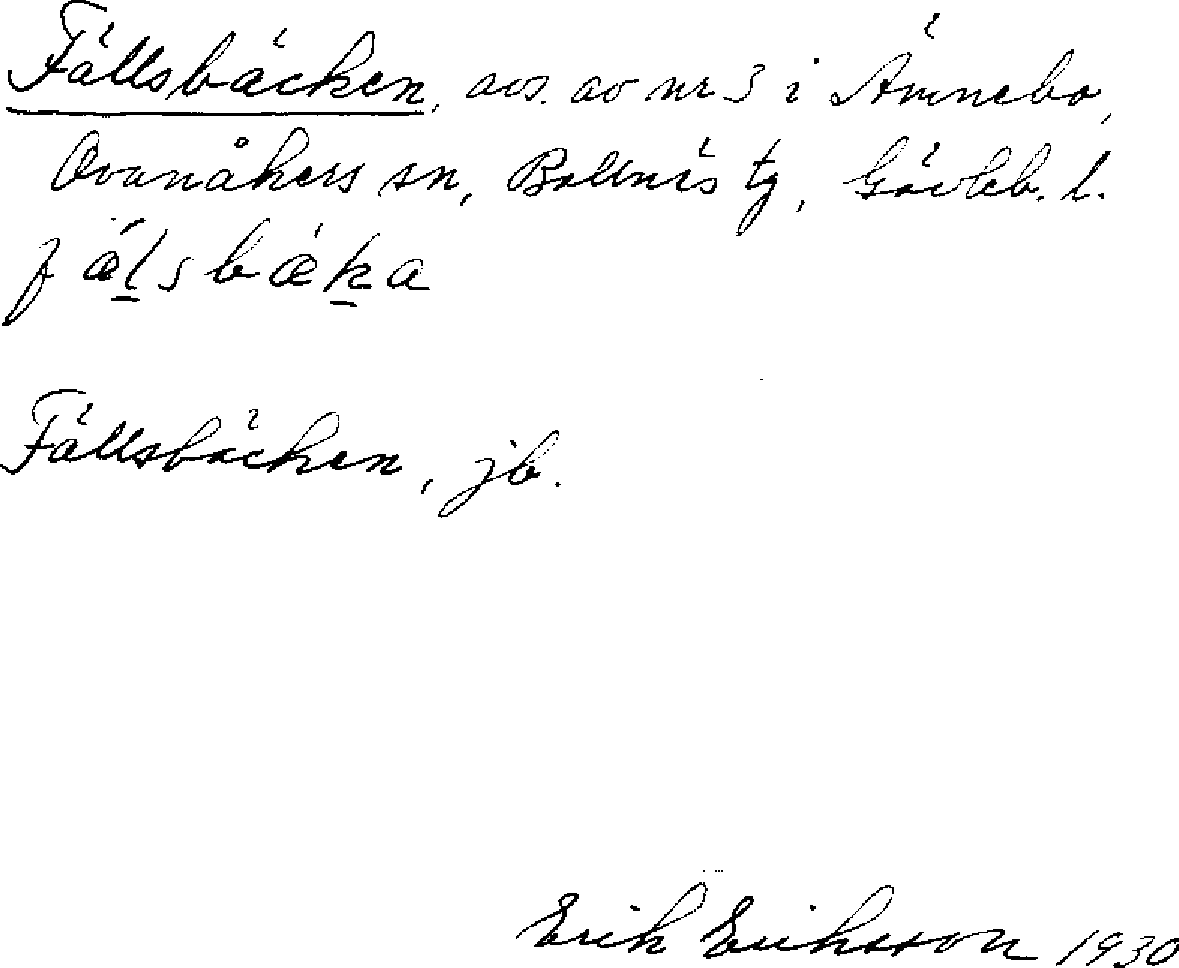 Fällsbäcken, avs. av nr 3 i Ämnebo,
Ovanåkers sn, Bollnäs tg, Gävleb. l.
fæ̀ḻsbæ̀ḵa
Fällsbäcken, jb.
Erik Eriksson 1930